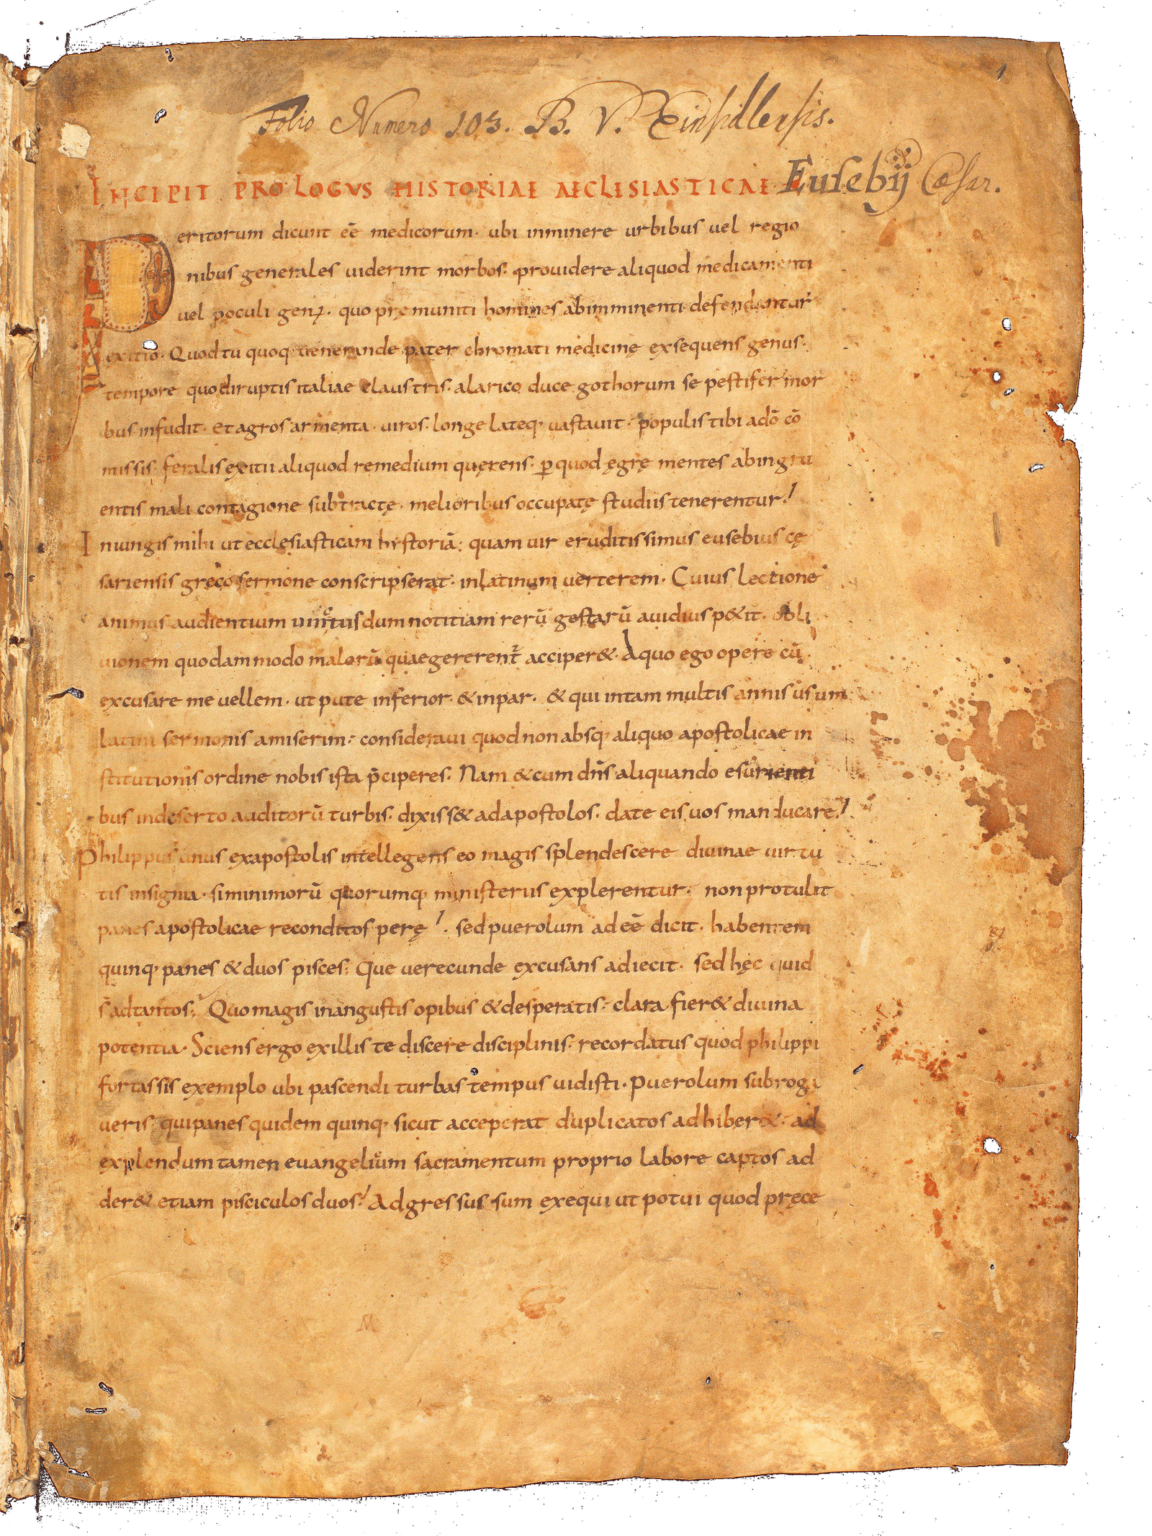 Folio Numero 103. B. V. Einsidlensis.
INCIPIT PROLOGVS HISTORIAE AECLESIASTICAE Eusebij Cæsar.
Peritorum dicunt eē medicorum· ubi inminere urbibus uel regio
nibus generales uiderint morbos· prouidere aliquod medicamenti
uel poculi gen⁊· quo pręmuniti homines abimminenti defendantur
exitio· Quodtu quoq· uenerande pater chromati medicinę exsequens genus·
tempore quodiruptis italiae claustris· alarico duce gothorum se pestifer mor
bus infudit· et agros armenta· uiros· longe lateq· uastauit· populis tibi adō cō
missis· feralis exitii aliquod remedium quęrens· ꝑ quod ęgrę mentes abingru
entis mali contagione subtractę· melioribus occupatę studiis tenerentur·
Iniungis mihi ut ecclesiasticam hystoriā· quam uir eruditissimus eusebius cę
sariensis gręco sermone conscripserat· inlatinum uerterem· Cuius lectione
animus audientium dum notitiam rerū gestarū auidius p&it· obli
uionem quodammodo malorū quaegererent̄ acciper&· Aquo ego opere cū
excusare me uellem· ut pute inferior· & inpar· & qui intam multis annis usum
latini sermonis amiserim· consideraui quod non absq· aliquo apostolicae in
stitutionis ordine nobis ista p̄ciperes· Nam & cum dn̄s aliquando esurienti
bus indeserto auditorū turbis· dixiss& ad apostolos· date eis uos manducare·
Philippus unus exapostolis intellegens eo magis splendescere diuinae uirtu
tis insignia· siminimorū quorumq· ministeriis explerentur· non protulit
panes apostolicae reconditos perę· sed puerolum adeē dicit· habentem
quinq· panes & duos pisces· Que uerecunde excusans adiecit· sed hęc quid
s adtantos· Quo magis inangustis opibus & desperatis· clara fier& diuina
potentia· Sciens ergo exillis te discere disciplinis· recordatus quod philippi
fortassis exemplo ubi pascendi turbas tempus uidisti· puerolum subroga
ueris· qui panes quidem quinq· sicut acceperat duplicatos adhiber&· ad
explendum tamen euangelium sacramentum proprio labore captos ad
der& etiam pisciculos duos· Adgressus sum exequi ut potui quod pręce